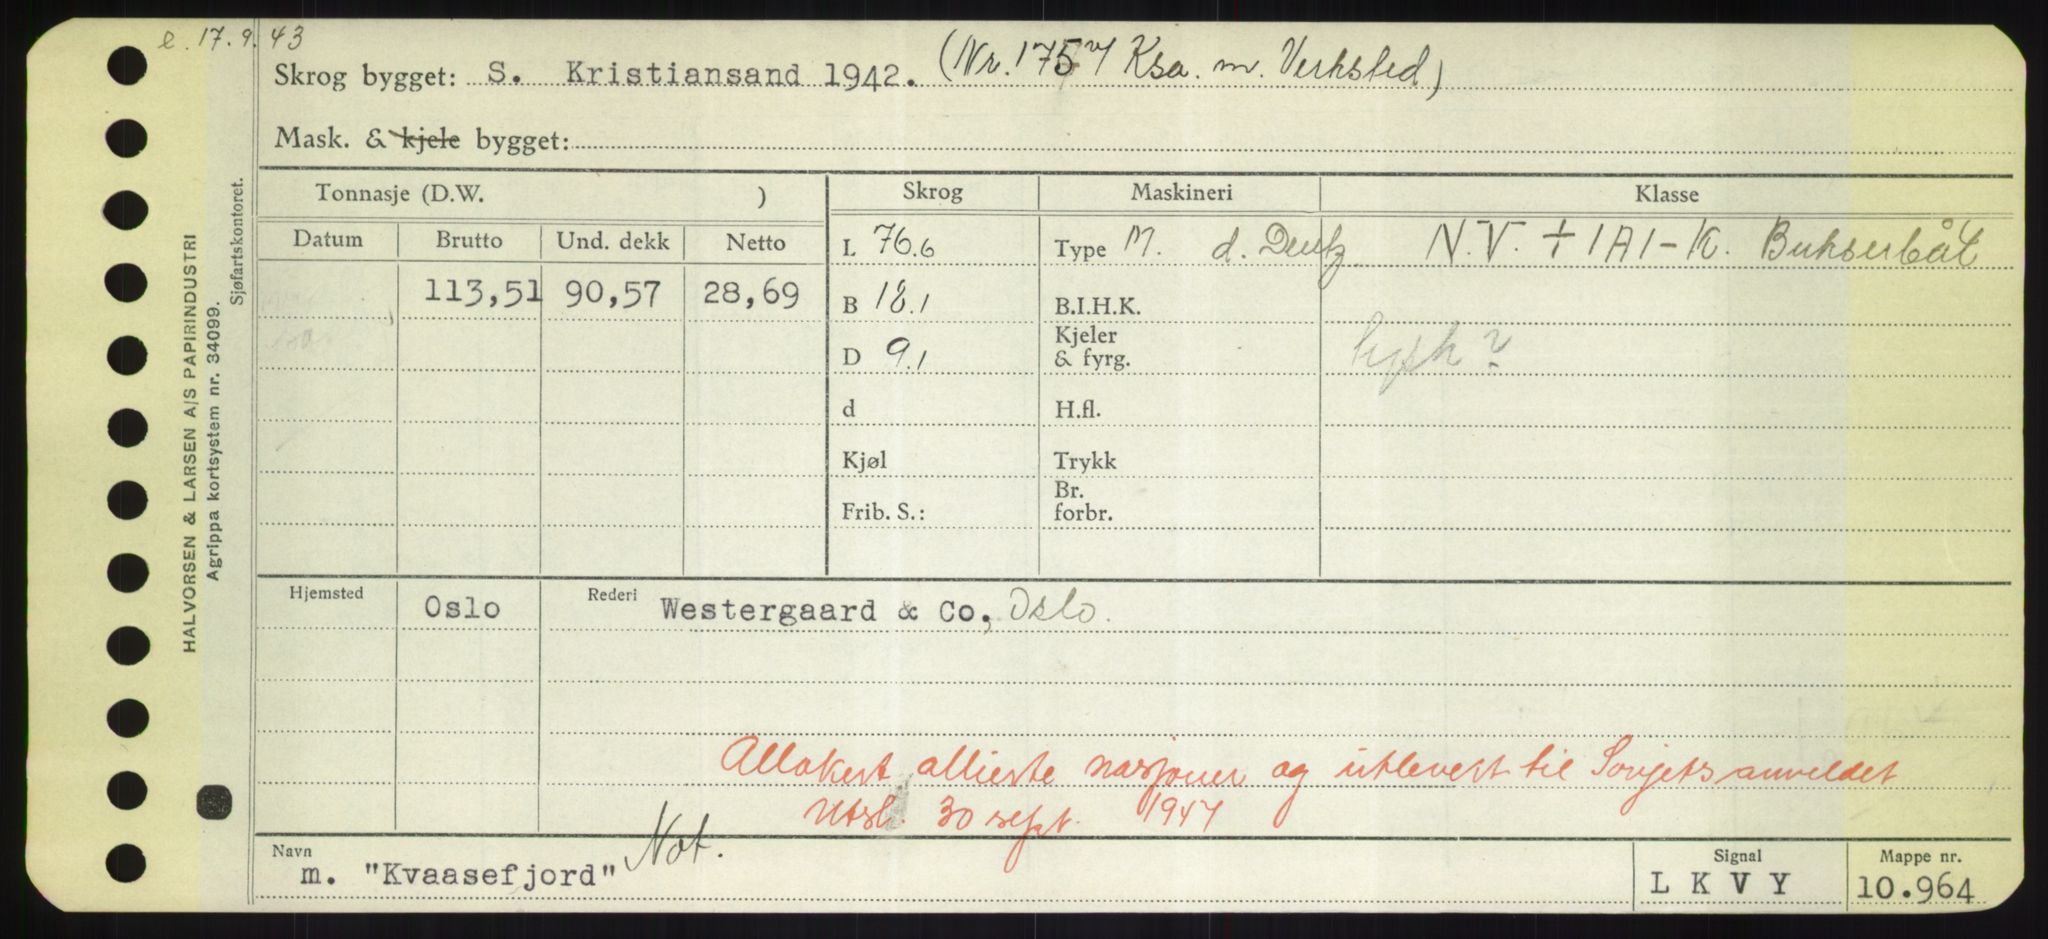 e. 17.9.43
Skrog bygget: S. Kristiansand 1942. (Nr. 175 v/ Ksa. m. Verksted)
Mask. & kjele bygget:
Tonnasje (D.W. )
Skrog
Maskineri
Klasse
Datum
Brutto
Und. dekk
Netto
L 76.6
Type M. d. Deutz
N.V. + 1A1-K. Bukserbåt
113,51
90,57
28,69
B 18.1
B.I.H.K.
D 9.1
Kjeler
& fyrg.
d
H.fl.
Kjøl
Trykk
Frib. S.:
Br.
forbr.
Hjemsted Oslo
Rederi Westergaard & Co, Oslo.
Allokert allierte nasjoner og utlevert til Sovjets anveldet
Utsl. 30 sept. 1947
Navn
m. "Kvaasefjord" Not.
Signal
L K V Y
Mappe nr.
10.964
HALVORSEN & LARSEN A/S PAPIRINDUSTRI
Agrippa kortsystem nr. 34099.
Sjøfartskontoret.